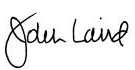 John Laird